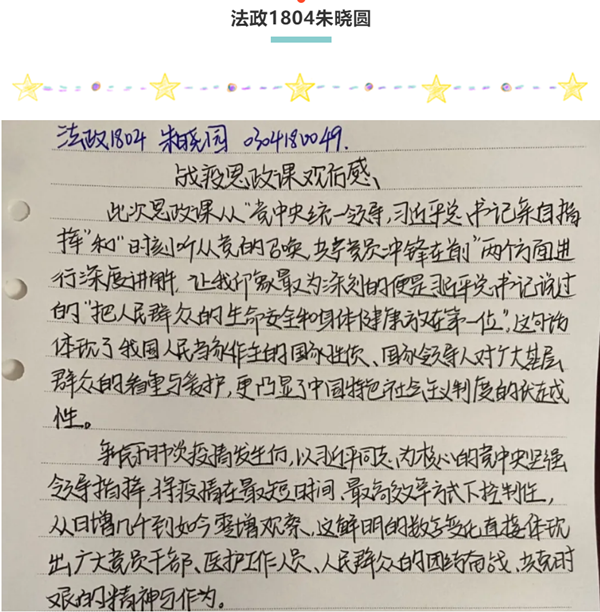 法政1804朱晓圆
法政1804 朱晓圆 0304180049.
战疫思政课观后感、
此次思政课从“党中央统一领导,习近平总书记亲自指
挥”和“时刻听从党的召唤,共产党员冲锋在前”两个方面进
行深度讲解,让我印象最为深刻的便是习近平总书记说过
的“把人民群众的生命安全和身体健康放在第一位”,这句话
体现了我国人民当家作主的国家性质、国家领导人对广大基层
群众的看重与爱护,更凸显了中国特色社会主义制度的优越
性。
新冠肺炎疫情发生后,以习近平同志为核心的党中央坚强
领导指挥,将疫情在最短时间、最高效率方式下控制住,
从日增几千到如今零增观察,这鲜明的数字变化直接体现
出广大党员干部、医护工作人员、人民群众的团结奋战、共克时
艰的精神与作为。